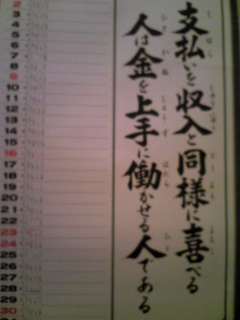 支払いを収入と同様に喜べる
人は金を上手に働かせる人である
2
3
4
5
6
7
8
9
10
11
12
13
14
15
16
17
18
19
20
21
22
23
24
25
26
27
28
29
30